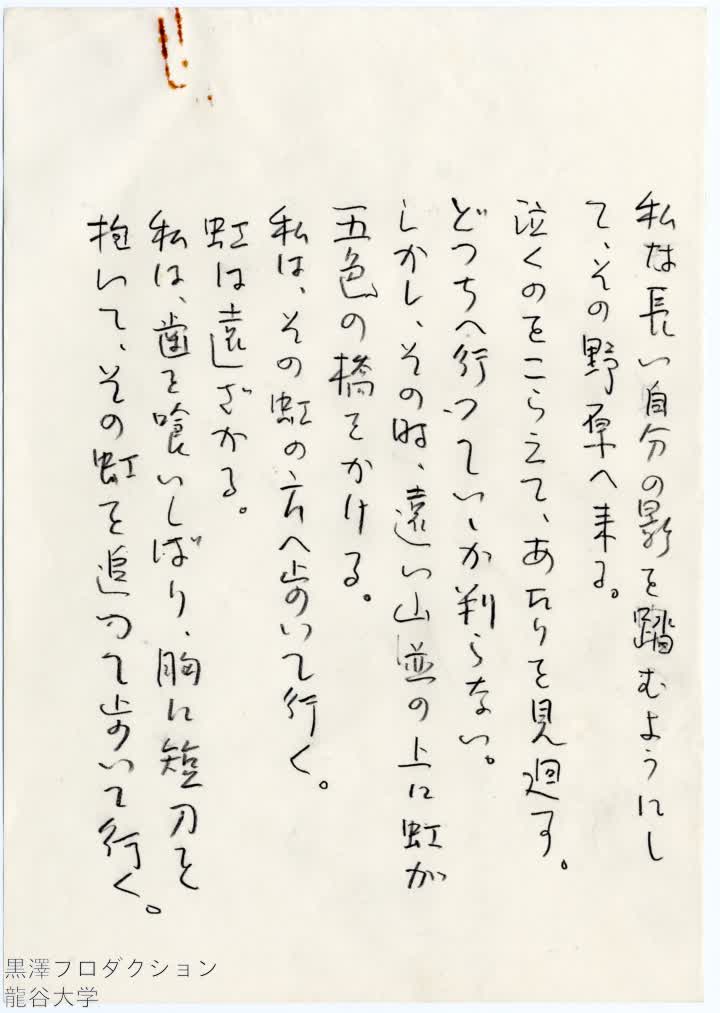 私は長い自分の影を踏むようにし
て、その野原へ来る。
泣くのをこらえて、あたりを見廻す。
どつちへ行つていゝか判らない。
しかし、その時、遠い山並の上に虹が
五色の橋をかける。
私は、その虹の方へ歩いて行く。
虹は遠ざかる。
私は、歯を喰いしばり、胸に短刀を
抱いて、その虹を追つて歩いて行く。
黒澤プロダクション
龍谷大学